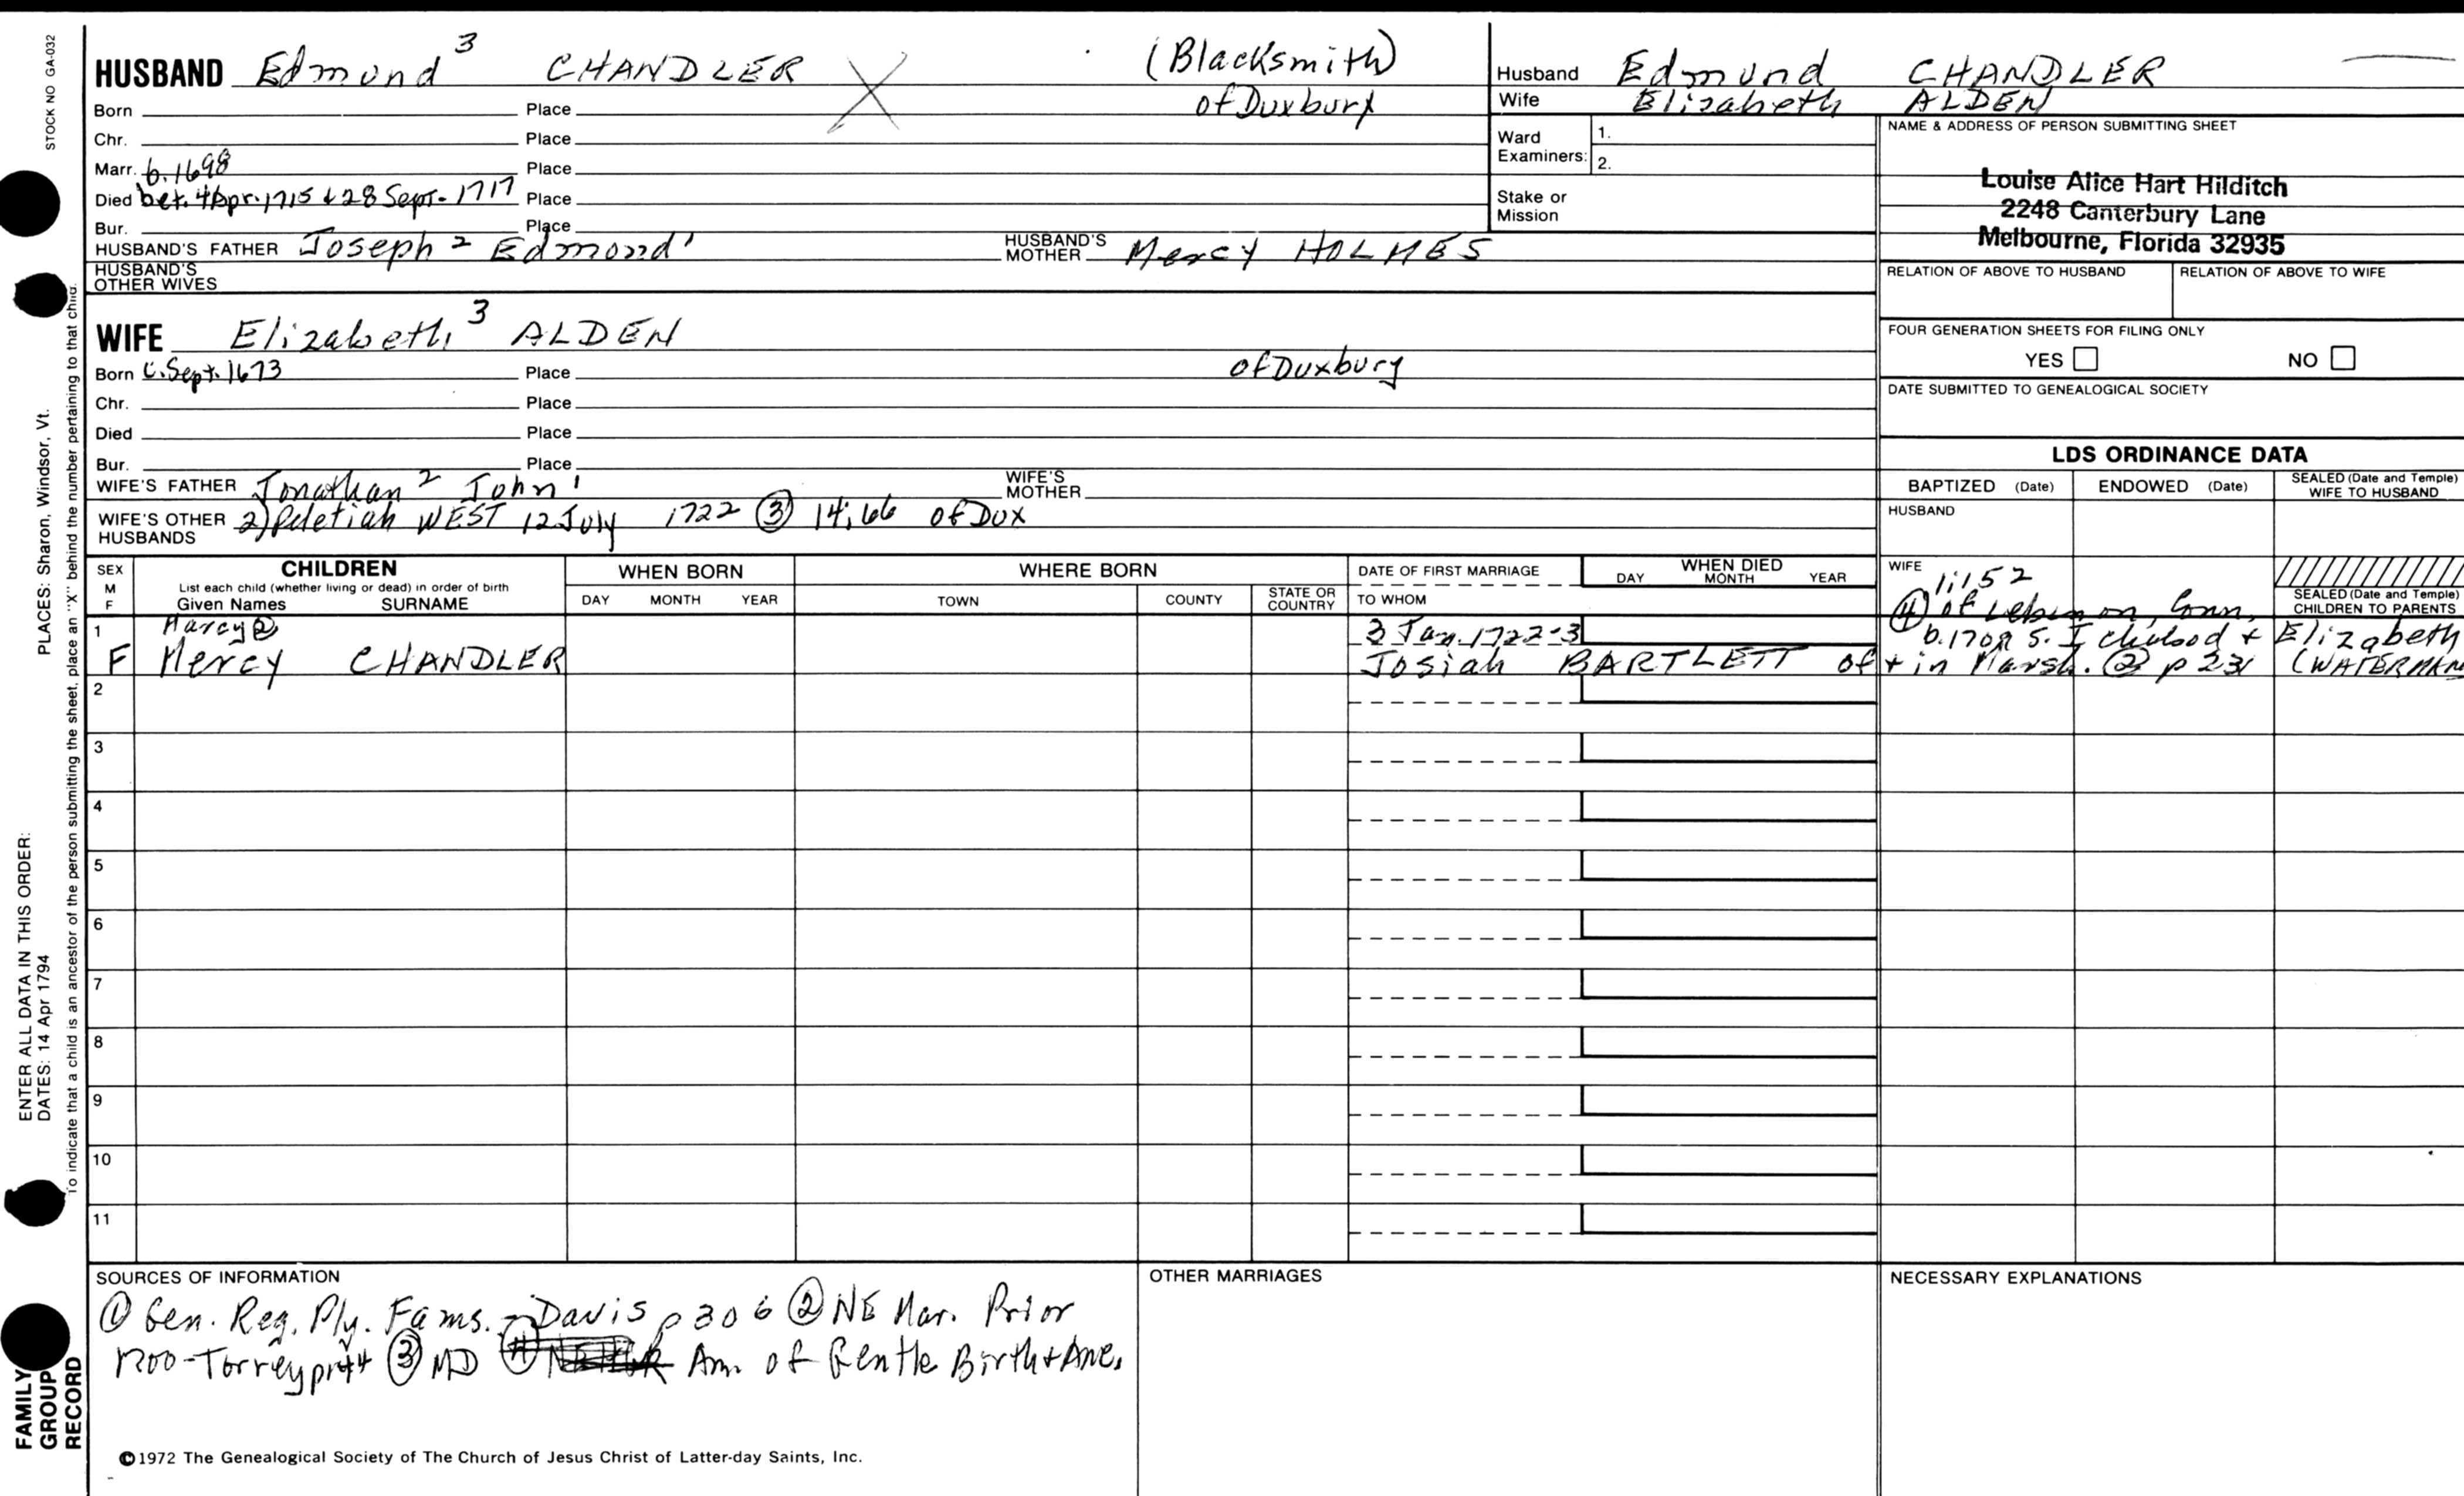 STOCK NO GA-032
HUSBAND Edmund 3 CHANDLER X (Blacksmith)
of Duxbury
Born Place
Chr. Place
Marr. b. 1698 Place
Died bet. 4 Apr. 1715 & 28 Sept. 1717 Place
Bur. Place
HUSBAND'S FATHER Joseph 2 Edmond 1 HUSBAND'S MOTHER Mercy HOLMES
HUSBAND'S OTHER WIVES
WIFE Elizabeth 3 ALDEN
Born c. Sept. 1673 Place of Duxbury
Chr. Place
Died Place
Bur. Place
WIFE'S FATHER Jonathan 2 John 1 WIFE'S MOTHER
WIFE'S OTHER HUSBANDS 2) Peletiah WEST 12 July 1722 ③ 14;66 of Dux
Husband Edmund CHANDLER
Wife Elizabeth ALDEN
Ward Examiners: 1.
2.
Stake or Mission
NAME & ADDRESS OF PERSON SUBMITTING SHEET
Louise Alice Hart Hilditch
2248 Canterbury Lane
Melbourne, Florida 32935
RELATION OF ABOVE TO HUSBAND RELATION OF ABOVE TO WIFE
FOUR GENERATION SHEETS FOR FILING ONLY
YES NO
DATE SUBMITTED TO GENEALOGICAL SOCIETY
LDS ORDINANCE DATA
BAPTIZED (Date) ENDOWED (Date) SEALED (Date and Temple) WIFE TO HUSBAND
HUSBAND
WIFE 1;152
SEALED (Date and Temple) CHILDREN TO PARENTS
SEX M F
CHILDREN
List each child (whether living or dead) in order of birth
Given Names SURNAME
WHEN BORN
DAY MONTH YEAR
WHERE BORN
TOWN COUNTY STATE OR COUNTRY
DATE OF FIRST MARRIAGE
TO WHOM
WHEN DIED
DAY MONTH YEAR
④ of Lebanon, Conn.
1 Marcy ② 3 Jan. 1722-3 b. 1701 s. Ichabod & Elizabeth
F Mercy CHANDLER Josiah BARTLETT of + in Marsh. ② p 231 (WATERMAN
2
3
4
5
6
7
8
9
10
11
SOURCES OF INFORMATION
① Gen. Reg. Ply. Fams. - Davis p 306 ② NE Mar. Prior
1700-Torrey p144 ③ MD ④ Am. of Gentle Birth & Anc.
OTHER MARRIAGES
NECESSARY EXPLANATIONS
©1972 The Genealogical Society of The Church of Jesus Christ of Latter-day Saints, Inc.
PLACES: Sharon, Windsor, Vt.
To indicate that a child is an ancestor of the person submitting the sheet, place an "X" behind the number pertaining to that child.
ENTER ALL DATA IN THIS ORDER:
DATES: 14 Apr 1794
FAMILY
GROUP
RECORD